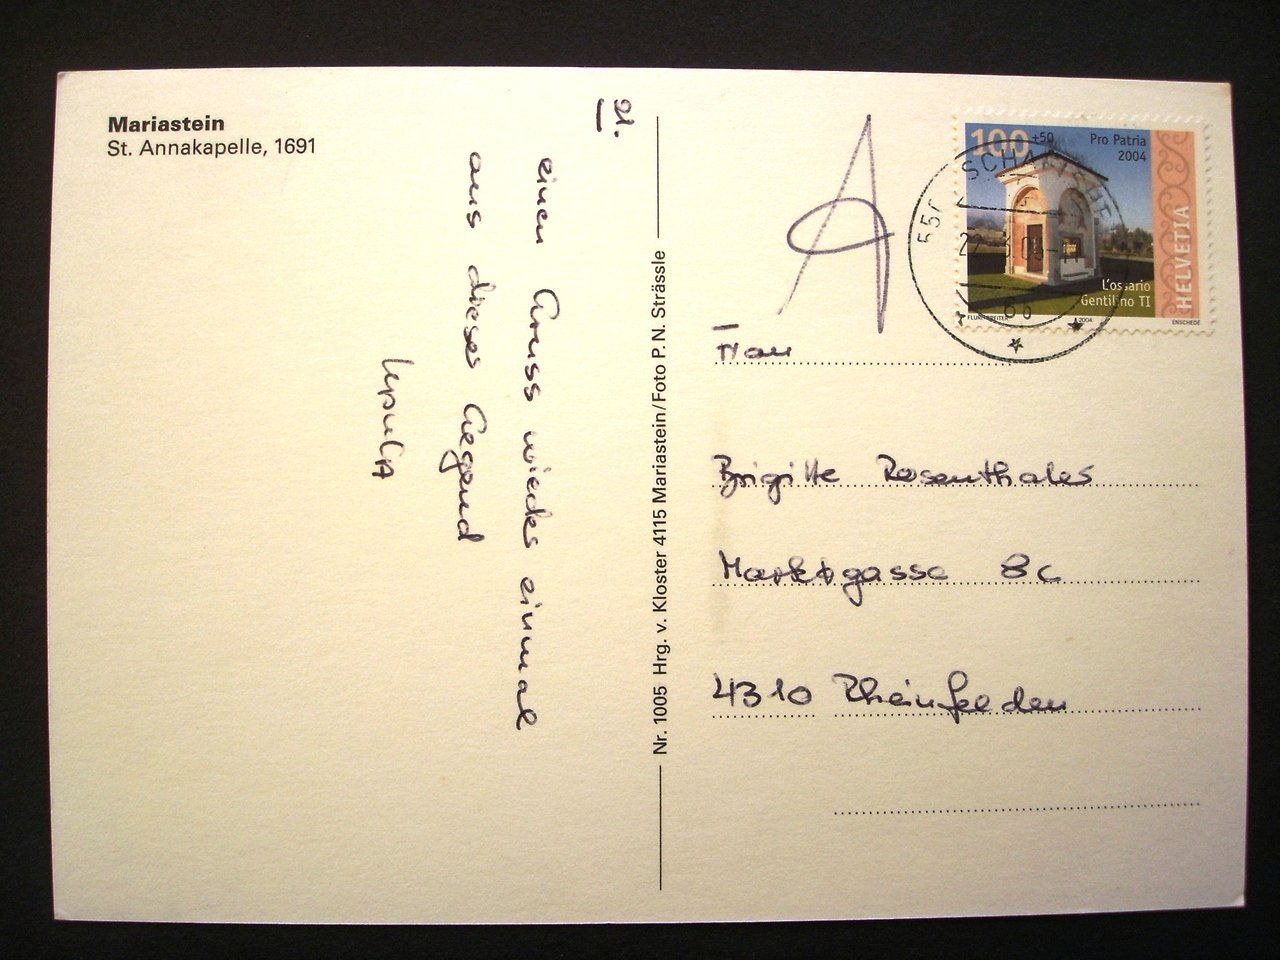 Mariastein
St. Annakapelle, 1691
21.
einen Gruss wieder einmal
aus dieser Gegend
Ursula
Nr. 1005 Hrg. v. Kloster 4115 Mariastein/Foto P. N. Strässle
A
100 +50
Pro Patria
2004
HELVETIA
L'ossario
Gentilino TI
2004
ENSCHEDE
Frau
Brigitte Rosenthaler
Marktgasse 8c
4310 Rheinfelden